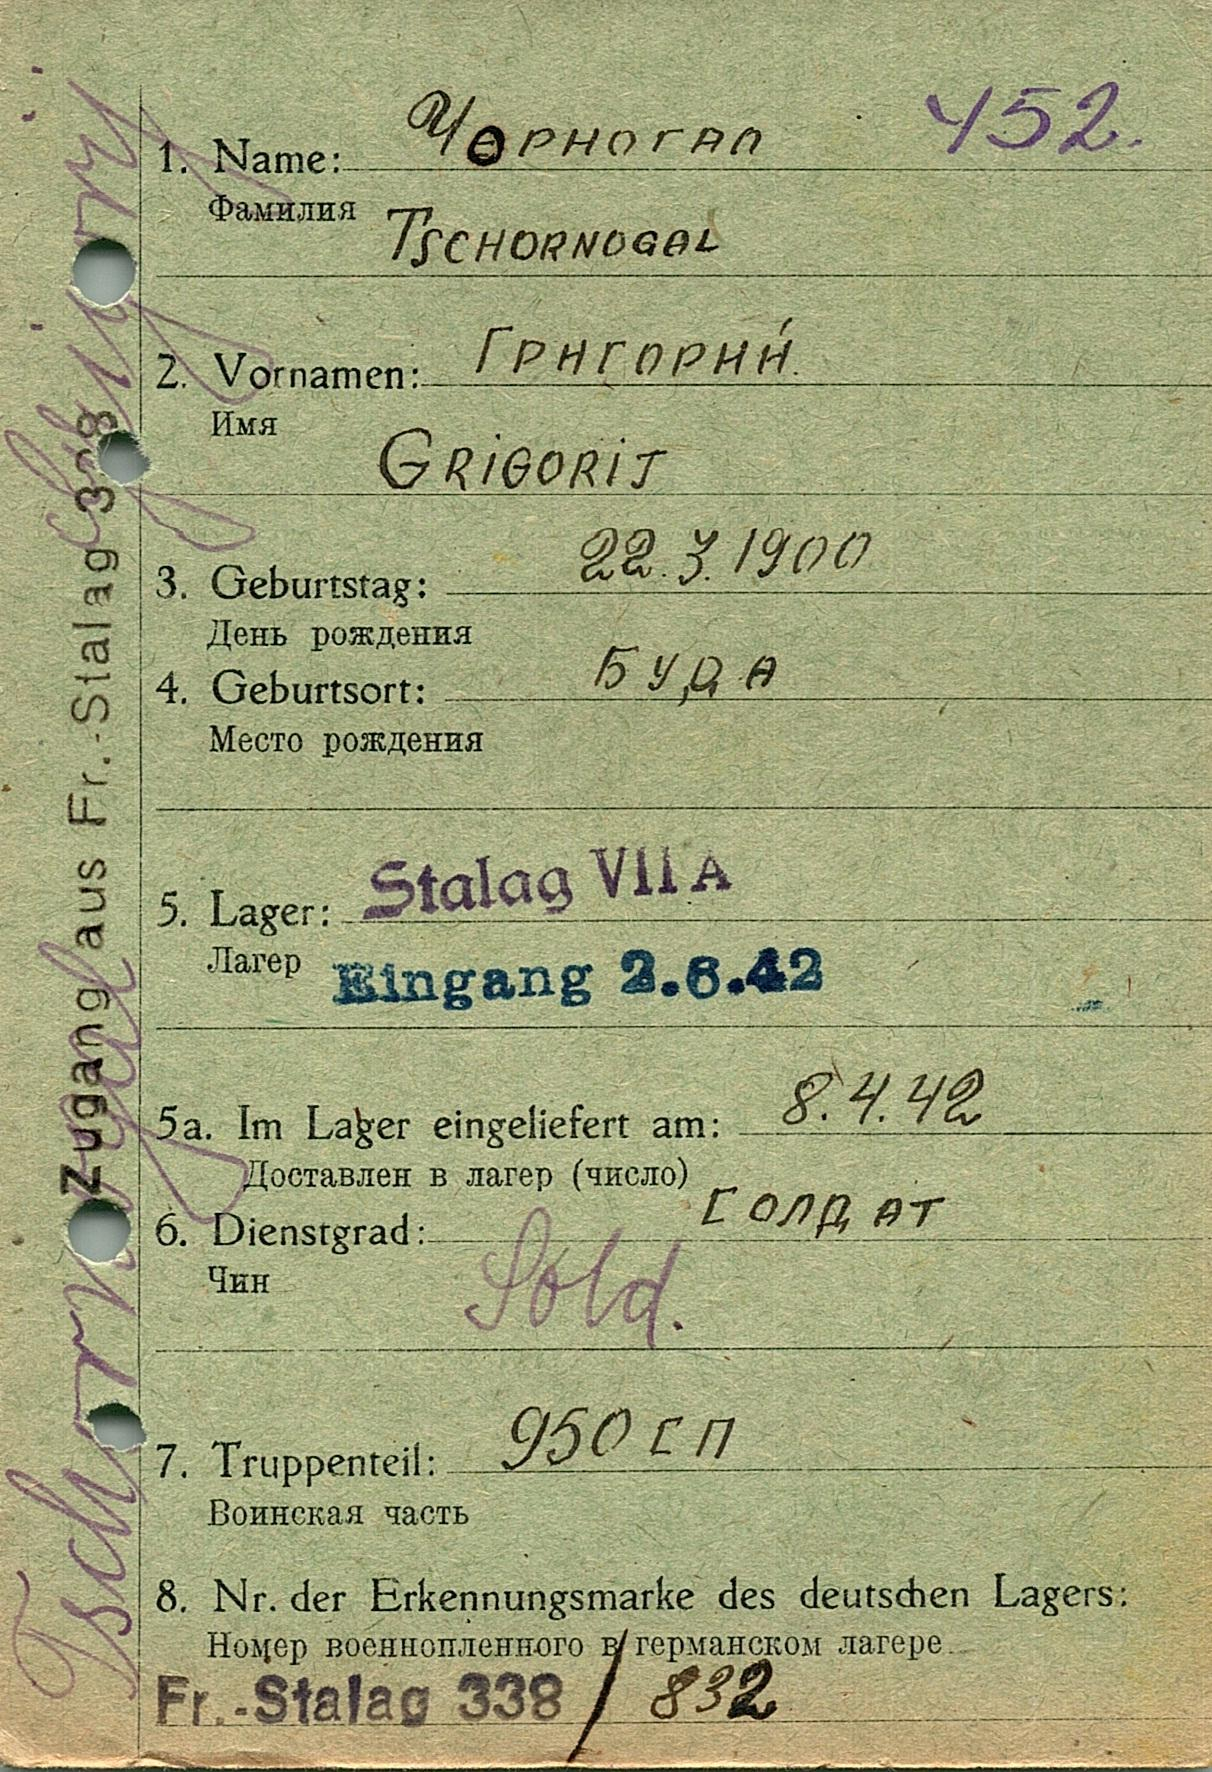 452.
1. Name: Чорногал
Фамилия
TSCHORNOGAL
2. Vornamen: Григорий
Имя
GRIGORIJ
3. Geburtstag: 22.3.1900
День рождения
4. Geburtsort: Буда
Место рождения
5. Lager: Stalag VII A
Лагер Eingang 2.6.42
5a. Im Lager eingeliefert am: 8.4.42
Доставлен в лагер (число)
6. Dienstgrad: Солдат
Чин Sold.
7. Truppenteil: 950 СП
Воинская часть
8. Nr. der Erkennungsmarke des deutschen Lagers:
Номер военнопленного в германском лагере
Fr.-Stalag 338 / 832
Zugang aus Fr.-Stalag 338
Tschornogal Grigorij